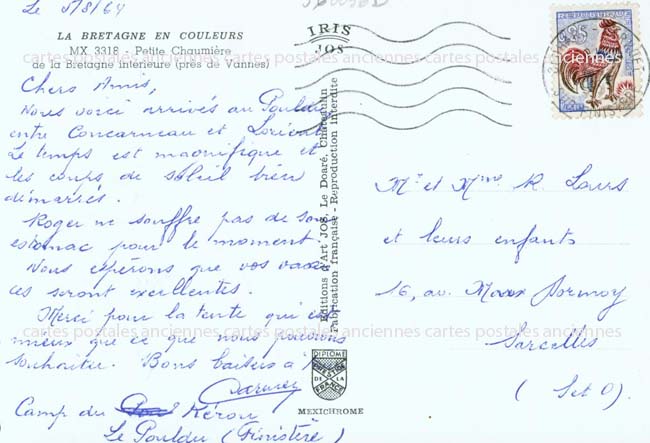 Le 5/8/64
LA BRETAGNE EN COULEURS
MX 3318 - Petite Chaumière
de la Bretagne intérieure (près de Vannes)
IRIS
JOS
Chers Amis,
Nous voici arrivés au Pouldu
entre Concarneau et Lorient
Le temps est magnifique et
les coups de soleil bien
démarrés.
Roger ne souffre pas de son
estomac pour le moment.
Nous espérons que vos vacan
ces seront excellentes.
Merci pour la tente qui est
mieux que ce que nous pouvions
souhaiter. Bons baisers à
Camp du Kérou
Le Pouldu (Finistère)
Editions d'Art JOS, Le Doaré, Chateaulin
Fabrication française - Reproduction interdite
DIPLOME
PRESTIGE
DE LA
FRANCE
MEXICHROME
0,25
Mr et Mme R. Laurs
et leurs enfants
16, av. Marx Dormoy
Sarcelles
(S et O)
cartes postales anciennes cartes postales anciennes cartes postales anciennes
cartes postales anciennes cartes postales anciennes cartes postales anciennes